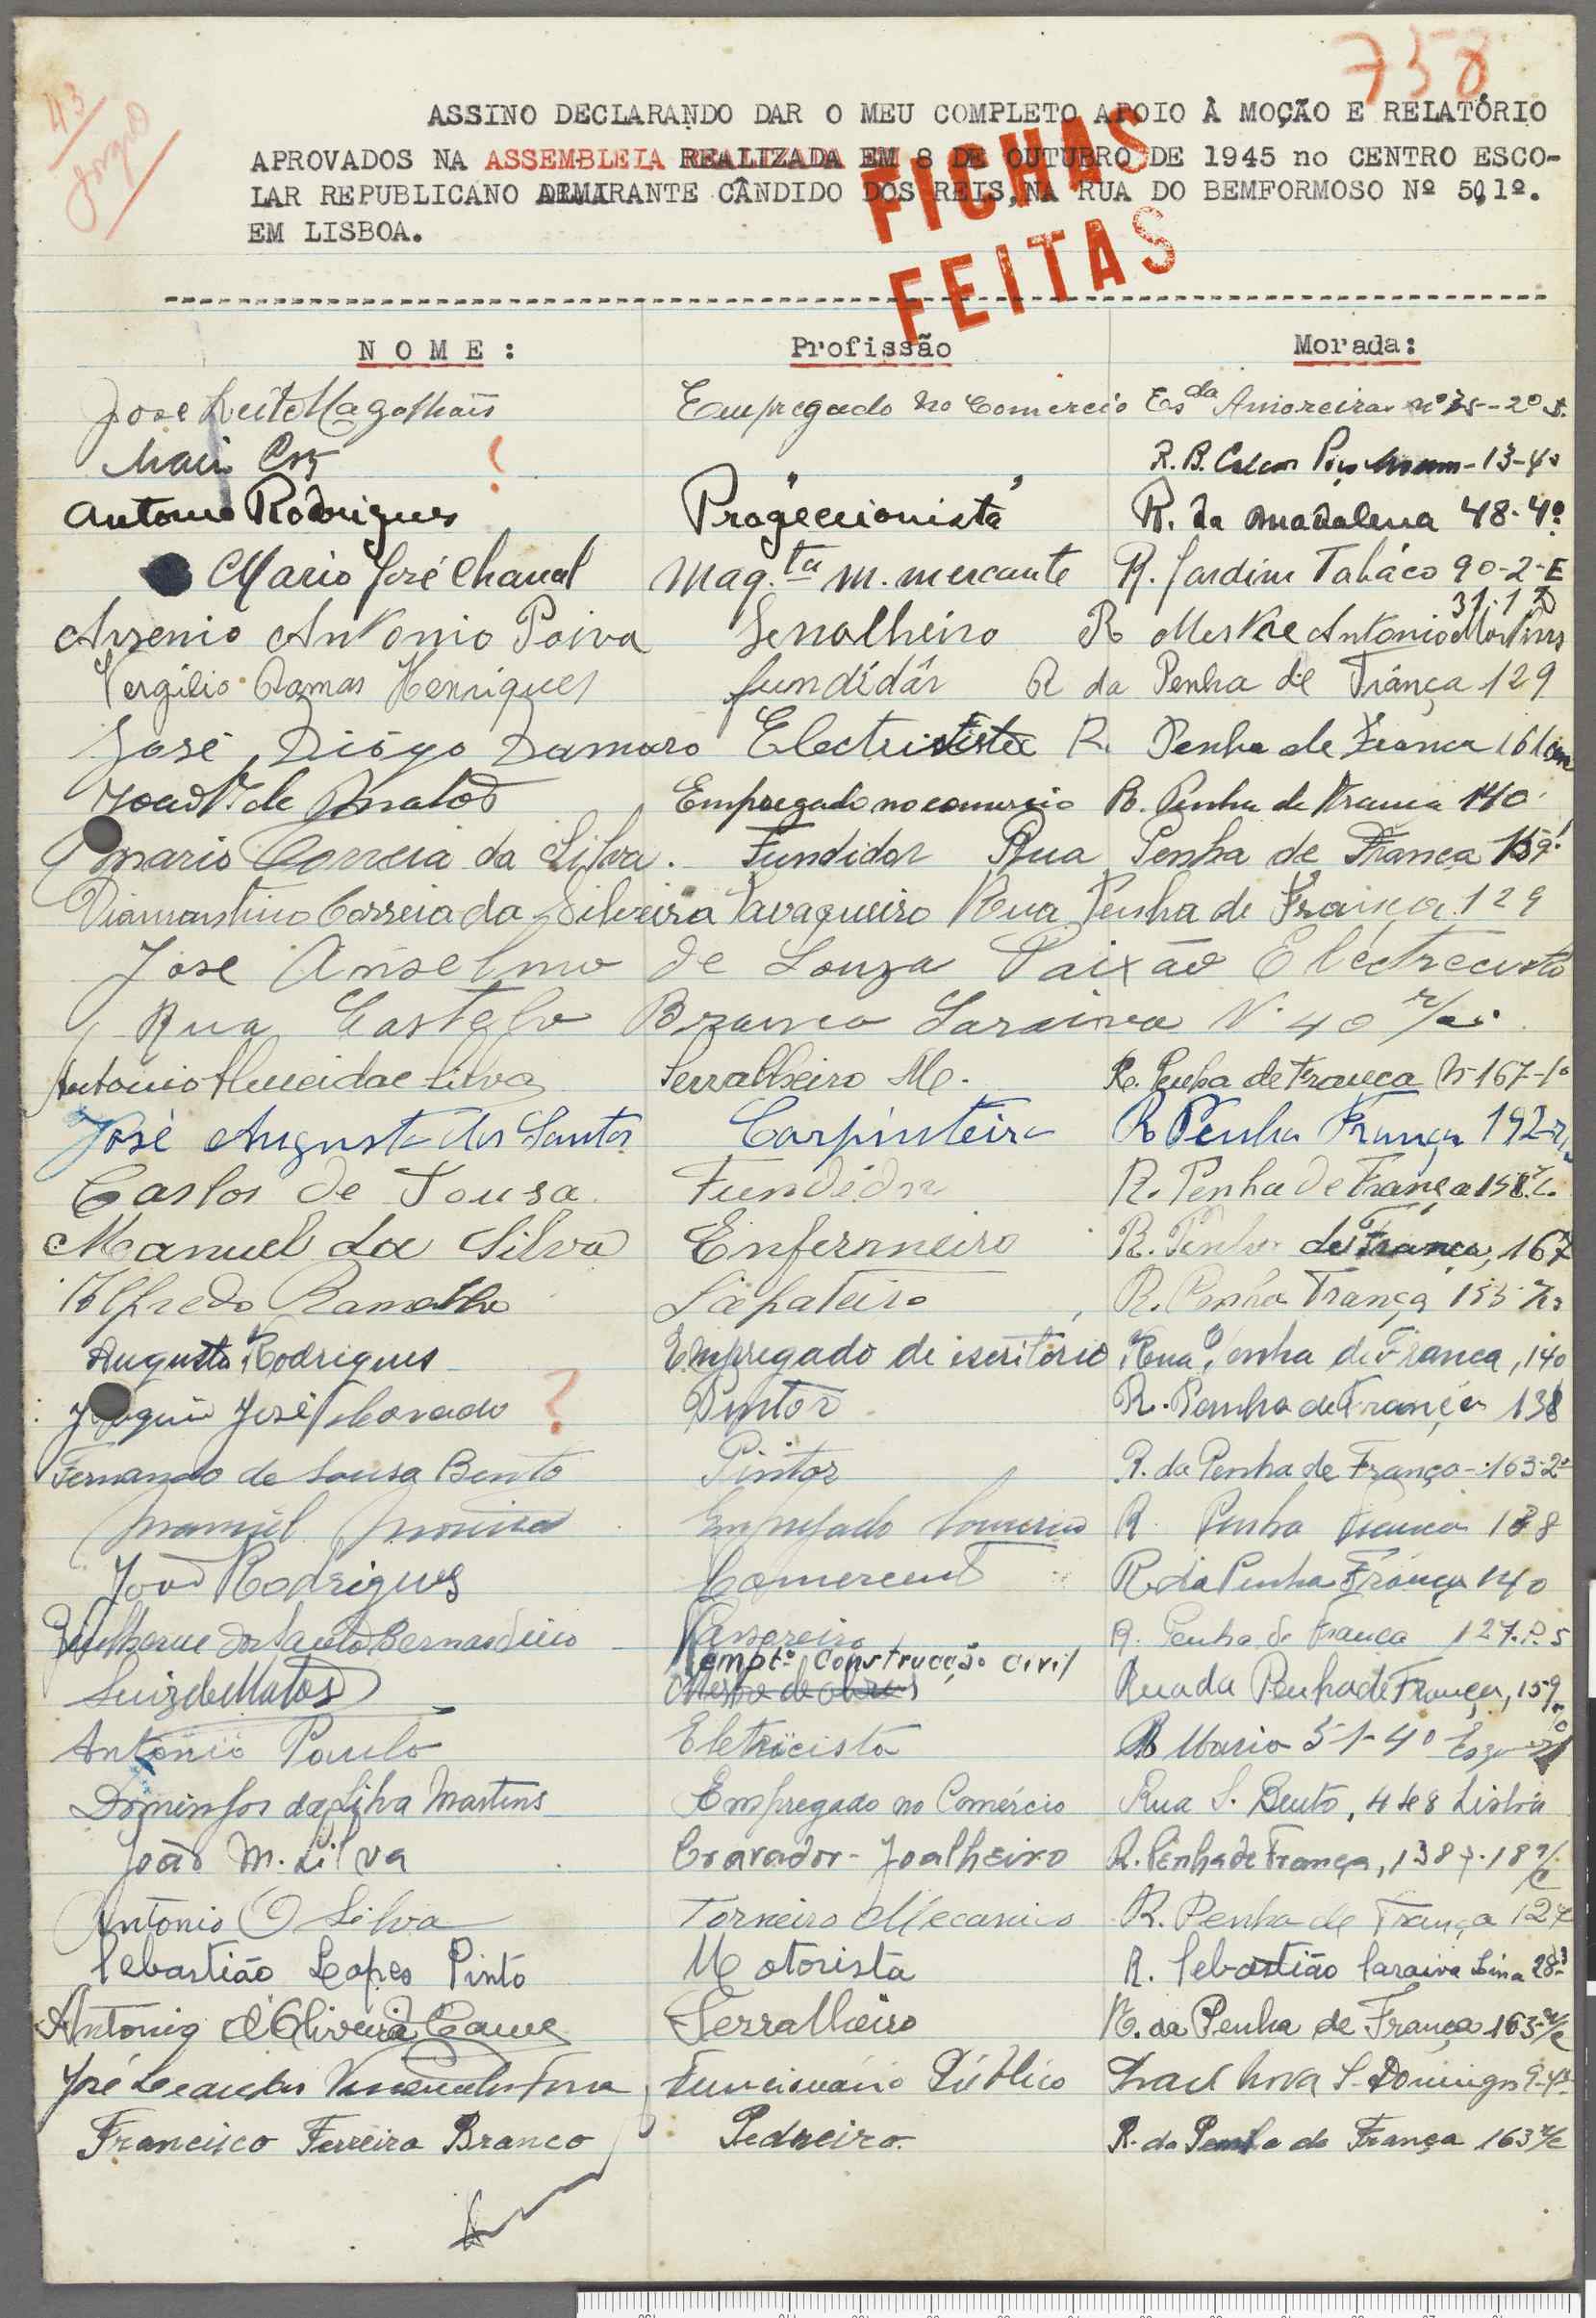 758
43
ASSINO DECLARANDO DAR O MEU COMPLETO APOIO À MOÇÃO E RELATÓRIO
APROVADOS NA ASSEMBLEIA REALIZADA EM 8 DE OUTUBRO DE 1945 no CENTRO ESCO-
LAR REPUBLICANO ALMIRANTE CÂNDIDO DOS REIS, NA RUA DO BEMFORMOSO Nº 50,1º.
EM LISBOA.
FICHAS
FEITAS
NOME: Profissão Morada:
José Leite Magalhais Empregado no Comercio Es da Amoreiras nº 75-2º
? " " R. B. 13-4º
Antonio Rodrigues Progeccionista R. da Madalena 48-4º
Mario José Chaval Maq.ta M. mercante R. Jardim Tabáco 90-2-E
31-1º D
Arsenio Antonio Paiva Serralheiro R Mestre Antonio Martins
Vergilio Ramas Henriques fundidôr R da Penha de França 129
José Diógo Damaso Electrisista R. Penha de França 161
João de Matos Empregado no comercio R. Penha de França 140
Mario Correia da Silva. Fundidor Rua Penha de França 159
Diamantino Correia da Silveira Rua Penha de França 129
José Anselmo de Souza Paixão Eléctrecista
Rua Castelo Branco Saraiva N. 40 r/c
Antonio Almeida e Silva Serralheiro Me. R. Penha de França Nº 167-1º
José Augusto dos Santos Carpinteiro R Penha França 192-r/
Carlos de Sousa Fundidor R. Penha de França 158 r/c.
Manuel da Silva Enfermeiro R. Penha de França, 167
Alfredo Ramalho Sapateiro R. Penha França 153 r/c
Augusto Rodrigues Empregado de escritório Rua Penha de França, 140
Joaquim José ? Pintor R. Penha de França 138
Fernando de Sousa Bento Pintor R. da Penha de França-163-2º
Manuel Moreira Empregado Comercio R. Penha França 138
João Rodrigues Comerciante R. da Penha França 140
Guilherme dos Santos Bernardino R. Penha de França 127.
Construcção Civil
Luiz de Matos Mestre de obras Rua da Penha de França, 159
Antonio Paulo Eletricista 51-4º
Domingos da Silva Martins Empregado no Comércio Rua S. Bento, 448 Lisboa
João M. Silva Cravador-Joalheiro R. Penha de França, 138 18 r/c
Antonio O Silva Torneiro Mecanico R. Penha de França 127
Sebastião Lopes Pinto Motorista R. Sebastião Saraiva Lima 28-
Antonio d'Oliveira Serralheiro R. da Penha de França 163-r/c
José Funcionário Público Nova S. Domingos 9-4º
Francisco Ferreira Branco Pedreiro. R. da Penha da França 163 r/c